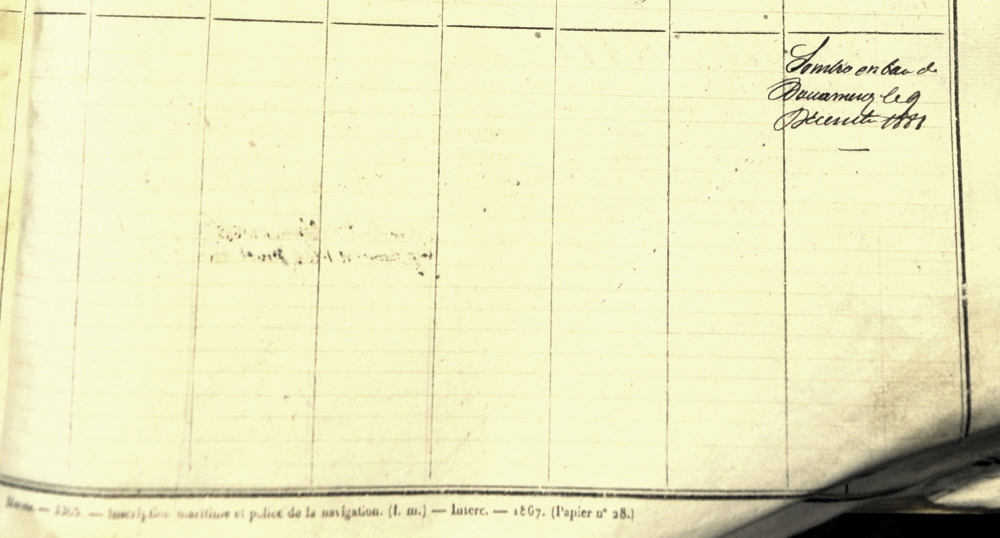 Sombré en baie de
Douarnenez le 9
Décembre 1881
— Inscription maritime et police de la navigation. (I. m.) — Interc. — 1867. (Papier n° 28.)